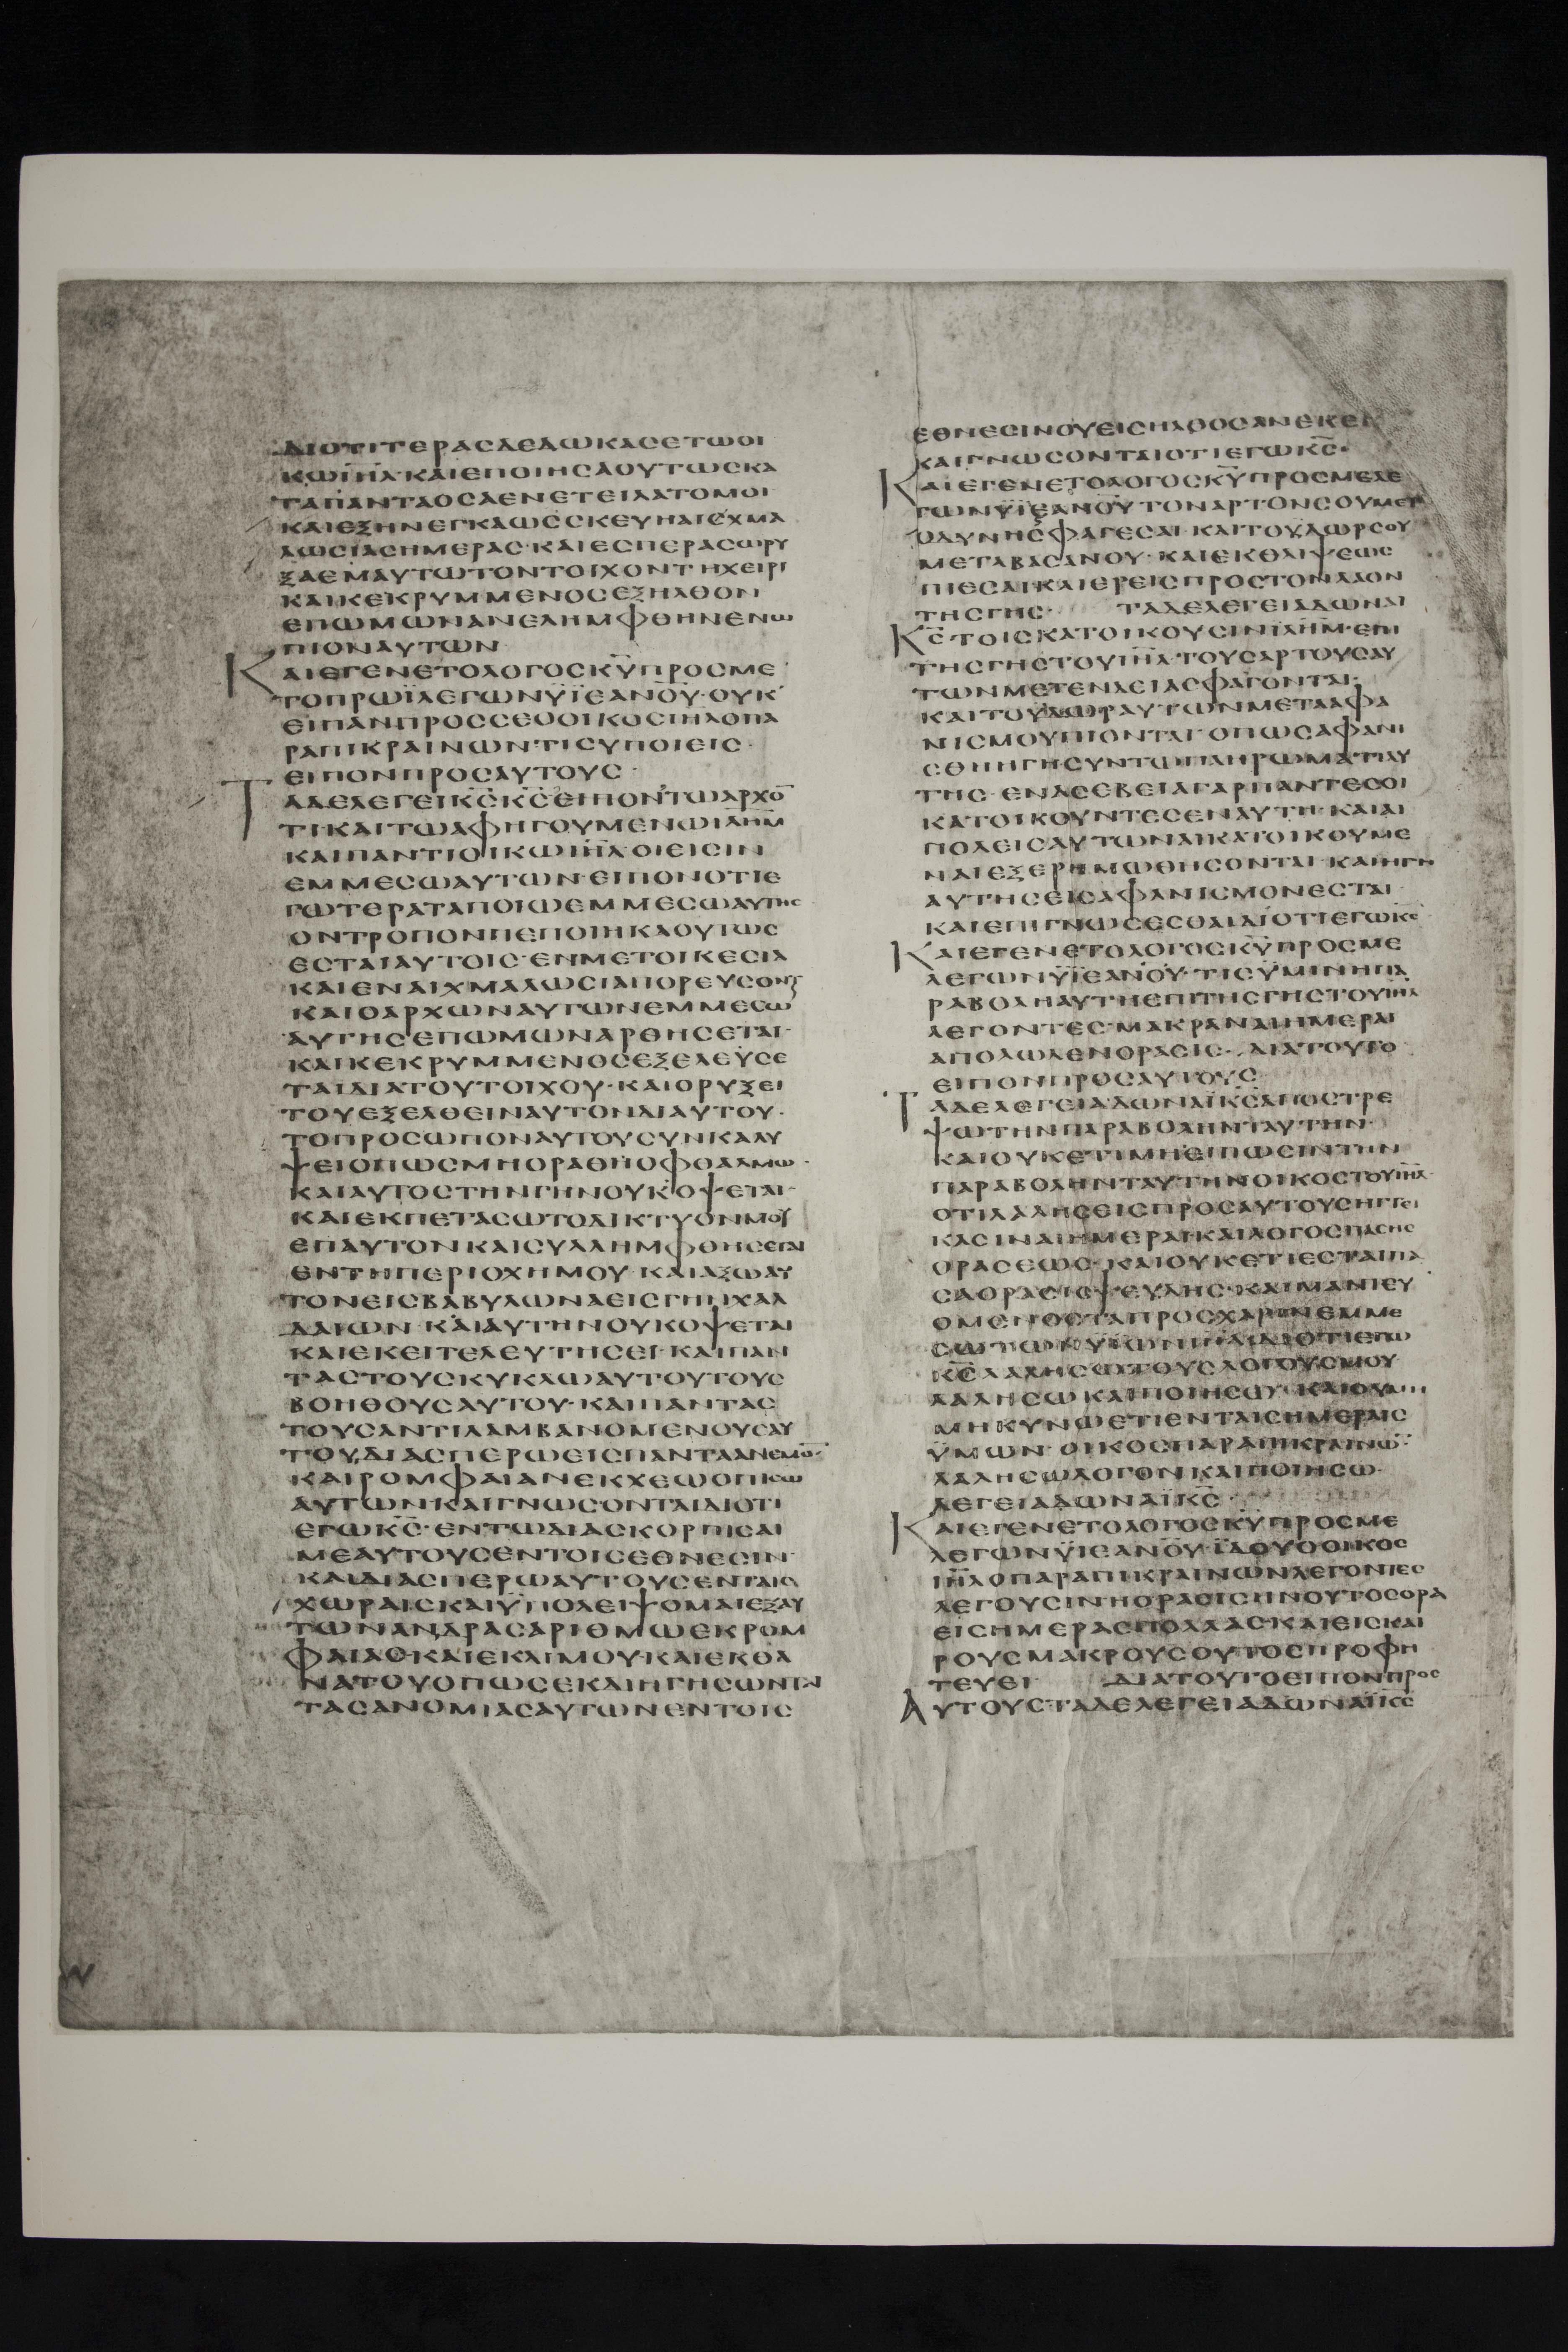 ΔΙΟΤΙΤΕΡΑΣΔΕΔΩΚΑΣΕΤΩΟΙ
ΚΩΙΗΛ·ΚΑΙΕΠΟΙΗΣΑΟΥΤΩΣΚΑ
ΤΑΠΑΝΤΑΟΣΑΕΝΕΤΕΙΛΑΤΟΜΟΙ·
ΚΑΙΕΞΗΝΕΓΚΑΩΣΣΚΕΥΗΑΙΧΜΑ
ΛΩΣΙΑΣΗΜΕΡΑΣ·ΚΑΙΕΣΠΕΡΑΣΩΡΥ
ΞΑΕΜΑΥΤΩΤΟΝΤΟΙΧΟΝΤΗΧΕΙΡΙ
ΚΑΙΚΕΚΡΥΜΜΕΝΟΣΕΞΗΛΘΟΝ
ΕΠΩΜΩΝΑΝΕΛΗΜΦΘΗΝΕΝΩ
ΠΙΟΝΑΥΤΩΝ
ΚΑΙΕΓΕΝΕΤΟΛΟΓΟΣΚΥΠΡΟΣΜΕ
ΤΟΠΡΩΪΛΕΓΩΝΫΪΕΑΝΟΥ·ΟΥΚ
ΕΙΠΑΝΠΡΟΣΣΕΟΟΙΚΟΣΙΗΛΟΠΑ
ΡΑΠΙΚΡΑΙΝΩΝ·ΤΙΣΥΠΟΙΕΙΣ·
ΕΙΠΟΝΠΡΟΣΑΥΤΟΥΣ·
ΤΑΔΕΛΕΓΕΙΚΣΚΣΕΙΠΟΝΤΩΑΡΧΟ̅
ΤΙΚΑΙΤΩΑΦΗΓΟΥΜΕΝΩΙΛΗΜ
ΚΑΙΠΑΝΤΙΟΙΚΩΙΗΛΟΙΕΙΣΙΝ
ΕΜΜΕΣΩΑΥΤΩΝ·ΕΙΠΟΝΟΤΙΕ
ΓΩΤΕΡΑΤΑΠΟΙΩΕΜΜΕΣΩΑΥΤΗΣ
ΟΝΤΡΟΠΟΝΠΕΠΟΙΗΚΑΟΥΤΩΣ
ΕΣΤΑΙΑΥΤΟΙΣ·ΕΝΜΕΤΟΙΚΕΣΙΑ
ΚΑΙΕΝΑΙΧΜΑΛΩΣΙΑΠΟΡΕΥΣΟΝΤ
ΚΑΙΟΑΡΧΩΝΑΥΤΩΝΕΜΜΕΣΩ
ΑΥΤΗΣΕΠΩΜΩΝΑΡΘΗΣΕΤΑΙ·
ΚΑΙΚΕΚΡΥΜΜΕΝΟΣΕΞΕΛΕΥΣΕ
ΤΑΙΔΙΑΤΟΥΤΟΙΧΟΥ·ΚΑΙΟΡΥΞΕΙ
ΤΟΥΕΞΕΛΘΕΙΝΑΥΤΟΝΔΙΑΥΤΟΥ·
ΤΟΠΡΟΣΩΠΟΝΑΥΤΟΥΣΥΝΚΑΛΥ
ΨΕΙΟΠΩΣΜΗΟΡΑΘΗΟΦΘΑΛΜΩ·
ΚΑΙΑΥΤΟΣΤΗΝΓΗΝΟΥΚΟΨΕΤΑΙ·
ΚΑΙΕΚΠΕΤΑΣΩΤΟΔΙΚΤΥΟΝΜΟΥ
ΕΠΑΥΤΟΝΚΑΙΣΥΛΛΗΜΦΘΗΣΕΤΑΙ
ΕΝΤΗΠΕΡΙΟΧΗΜΟΥ·ΚΑΙΑΞΩΑΥ
ΤΟΝΕΙΣΒΑΒΥΛΩΝΑΕΙΣΓΗΝΧΑΛ
ΔΑΙΩΝ·ΚΑΙΑΥΤΗΝΟΥΚΟΨΕΤΑΙ
ΚΑΙΕΚΕΙΤΕΛΕΥΤΗΣΕΙ·ΚΑΙΠΑΝ
ΤΑΣΤΟΥΣΚΥΚΛΩΑΥΤΟΥΤΟΥΣ
ΒΟΗΘΟΥΣΑΥΤΟΥ·ΚΑΙΠΑΝΤΑΣ
ΤΟΥΣΑΝΤΙΛΑΜΒΑΝΟΜΕΝΟΥΣΑΥ
ΤΟΥ,ΔΙΑΣΠΕΡΩΕΙΣΠΑΝΤΑΑΝΕΜΟ̅·
ΚΑΙΡΟΜΦΑΙΑΝΕΚΧΕΩΟΠΙΣΩ
ΑΥΤΩΝ·ΚΑΙΓΝΩΣΟΝΤΑΙΔΙΟΤΙ
ΕΓΩΚΣ·ΕΝΤΩΔΙΑΣΚΟΡΠΙΣΑΙ
ΜΕΑΥΤΟΥΣΕΝΤΟΙΣΕΘΝΕΣΙΝ·
ΚΑΙΔΙΑΣΠΕΡΩΑΥΤΟΥΣΕΝΤΑΙΣ
ΧΩΡΑΙΣΚΑΙΫΠΟΛΕΙΨΟΜΑΙΕΞΑΥ
ΤΩΝΑΝΔΡΑΣΑΡΙΘΜΩΕΚΡΟΜ
ΦΑΙΑΣ·ΚΑΙΕΚΛΙΜΟΥ·ΚΑΙΕΚΘΑ
ΝΑΤΟΥΟΠΩΣΕΚΔΙΗΓΗΣΩΝΤΑΙ
ΤΑΣΑΝΟΜΙΑΣΑΥΤΩΝΕΝΤΟΙΣ
ΕΘΝΕΣΙΝΟΥΕΙΣΗΛΘΟΣΑΝΕΚΕΙ
ΚΑΙΓΝΩΣΟΝΤΑΙΟΤΙΕΓΩΚΣ·
ΚΑΙΕΓΕΝΕΤΟΛΟΓΟΣΚΥΠΡΟΣΜΕΛΕ
ΓΩΝΫΪΕΑΝΟΥΤΟΝΑΡΤΟΝΣΟΥΜΕΤ
ΟΔΥΝΗΣΦΑΓΕΣΑΙ·ΚΑΙΤΟΥΔΩΡΣΟΥ
ΜΕΤΑΒΑΣΑΝΟΥ·ΚΑΙΕΚΘΛΙΨΕΩΣ
ΠΙΕΣΑΙ·ΚΑΙΕΡΕΙΣΠΡΟΣΤΟΝΛΑΟΝ
ΤΗΣΓΗΣ· ΤΑΔΕΛΕΓΕΙΑΔΩΝΑΙ
ΚΣ·ΤΟΙΣΚΑΤΟΙΚΟΥΣΙΝΙΛΗΜ·ΕΠΙ
ΤΗΣΓΗΣΤΟΥΙΗΛ·ΤΟΥΣΑΡΤΟΥΣΑΥ
ΤΩΝΜΕΤΕΝΔΕΙΑΣΦΑΓΟΝΤΑΙ·
ΚΑΙΤΟΥΔΩΡΑΥΤΩΝΜΕΤΑΑΦΑ
ΝΙΣΜΟΥΠΙΟΝΤΑΙ·ΟΠΩΣΑΦΑΝΙ
ΣΘΗΗΓΗΣΥΝΤΩΠΛΗΡΩΜΑΤΙΑΥ
ΤΗΣ·ΕΝΑΣΕΒΕΙΑΓΑΡΠΑΝΤΕΣΟΙ
ΚΑΤΟΙΚΟΥΝΤΕΣΕΝΑΥΤΗ·ΚΑΙΑΙ
ΠΟΛΕΙΣΑΥΤΩΝΑΙΚΑΤΟΙΚΟΥΜΕ
ΝΑΙΕΞΕΡΗΜΩΘΗΣΟΝΤΑΙ·ΚΑΙΗΓΗ
ΑΥΤΗΣΕΙΣΑΦΑΝΙΣΜΟΝΕΣΤΑΙ·
ΚΑΙΕΠΙΓΝΩΣΕΣΘΑΙΔΙΟΤΙΕΓΩΚΣ
ΚΑΙΕΓΕΝΕΤΟΛΟΓΟΣΚΥΠΡΟΣΜΕ
ΛΕΓΩΝΫΪΕΑΝΟΥ·ΤΙΣΫΜΙΝΗΠΑ
ΡΑΒΟΛΗΑΥΤΗΕΠΙΤΗΣΓΗΣΤΟΥΙΗΛ
ΛΕΓΟΝΤΕΣ·ΜΑΚΡΑΝΑΙΗΜΕΡΑΙ
ΑΠΟΛΩΛΕΝΟΡΑΣΙΣ·ΔΙΑΤΟΥΤΟ
ΕΙΠΟΝΠΡΟΣΑΥΤΟΥΣ
ΤΑΔΕΛΕΓΕΙΑΔΩΝΑΪΚΣΑΠΟΣΤΡΕ
ΨΩΤΗΝΠΑΡΑΒΟΛΗΝΤΑΥΤΗΝ·
ΚΑΙΟΥΚΕΤΙΜΗΕΙΠΩΣΙΝΤΗΝ
ΠΑΡΑΒΟΛΗΝΤΑΥΤΗΝΟΙΚΟΣΤΟΥΙΗΛ·
ΟΤΙΛΑΛΗΣΕΙΣΠΡΟΣΑΥΤΟΥΣΗΓΓΕΙ
ΚΑΣΙΝΑΙΗΜΕΡΑΙ·ΚΑΙΛΟΓΟΣΠΑΣΗΣ
ΟΡΑΣΕΩΣ·ΚΑΙΟΥΚΕΤΙΕΣΤΑΙΠΑ
ΣΑΟΡΑΣΙΣΨΕΥΔΗΣ·ΚΑΙΜΑΝΤΕΥ
ΟΜΕΝΟΣΤΑΠΡΟΣΧΑΡΙΝΕΜΜΕ
ΚΣΛΑΛΗΣΩΤΟΥΣΛΟΓΟΥΣΜΟΥ
ΛΑΛΗΣΩΚΑΙΠΟΙΗΣΩ·ΚΑΙΟΥ
ΜΗΚΥΝΩΕΤΙΕΝΤΑΙΣΗΜΕΡΑΙΣ
ΫΜΩΝ·ΟΙΚΟΣΠΑΡΑΠΙΚΡΑΙΝΩ̅
ΛΑΛΗΣΩΛΟΓΟΝΚΑΙΠΟΙΗΣΩ·
ΛΕΓΕΙΑΔΩΝΑΪΚΣ·
ΚΑΙΕΓΕΝΕΤΟΛΟΓΟΣΚΥΠΡΟΣΜΕ
ΛΕΓΩΝΫΙΕΑΝΟΥ·ΪΔΟΥΟΟΙΚΟΣ
ΙΗΛΟΠΑΡΑΠΙΚΡΑΙΝΩΝΛΕΓΟΝΤΕΣ
ΛΕΓΟΥΣΙΝΗΟΡΑΣΙΣΗΝΟΥΤΟΣΟΡΑ
ΕΙΣΗΜΕΡΑΣΠΟΛΛΑΣ·ΚΑΙΕΙΣΚΑΙ
ΡΟΥΣΜΑΚΡΟΥΣΟΥΤΟΣΠΡΟΦΗ
ΤΕΥΕΙ· ΔΙΑΤΟΥΤΟΕΙΠΟΝΠΡΟΣ
ΑΥΤΟΥΣ·ΤΑΔΕΛΕΓΕΙΑΔΩΝΑΪΚΣ